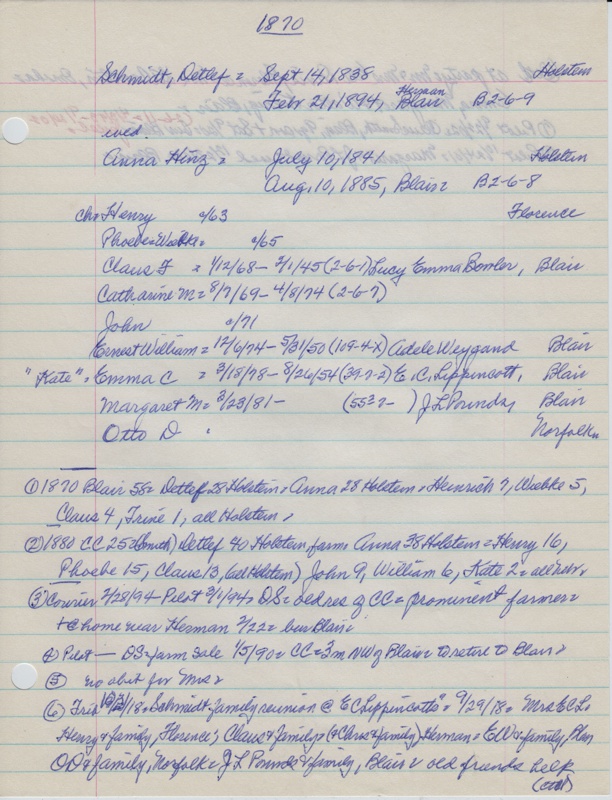 1870
Schmidt, Detlef = Sept 14, 1838 Holstein
Febr 21, 1894, Herman Blair B2-6-9
wed.
Anna Hinz = July 10, 1841 Holstein
Aug. 10, 1885, Blair= B2-6-8
chn Henry c/63 Florence
Phoebe=Wiebke= c/65
Claus F = 1/12/68 - 2/1/45 (2-6-1) Lucy Emma Bowler, Blair
Catharine M = 8/7/69 - 4/8/74 (2-6-7)
John c/71
Ernest William = 12/6/74 - 5/31/50 (109-4-x) Adele Weygand Blair
"Kate" = Emma C = 3/18/78 - 8/26/54 (39-7-2) E.C. Lippincott, Blair
Margaret M = 3/23/81 - (55 J L Pounds, Blair
Otto D Norfolk
① 1870 Blair 58= Detlef 28 Holstein= Anna 28 Holstein= Heinrich 7, Wiebke 5,
Claus 4, Trine 1, all Holstein
② 1880 CC 25= Detlef 40 Holstein, farm= Anna 38 Holstein= Henry 16,
Phoebe 15, Claus 13, (all Holstein) John 9, William 6, Kate 2= all
③ Courier 2/28/94 Pilot 3/1/94= DS= old res of CC= prominent farmer=
home near Herman 2/22= bur Blair=
④ Pilot — DS= farm sale 1/5/90= CC= 3 m NW of Blair= to retire to Blair=
⑤ no obit for Mrs=
⑥ Trib = Schmidt family reunion @ E C Lippincotts = 9/29/18= Mrs E C L=
Henry & family, Florence; Claus & family= (& Claus & family) Herman= E W & family, Blair
O D & family, Norfolk= J L Pounds & family, Blair= old friends help